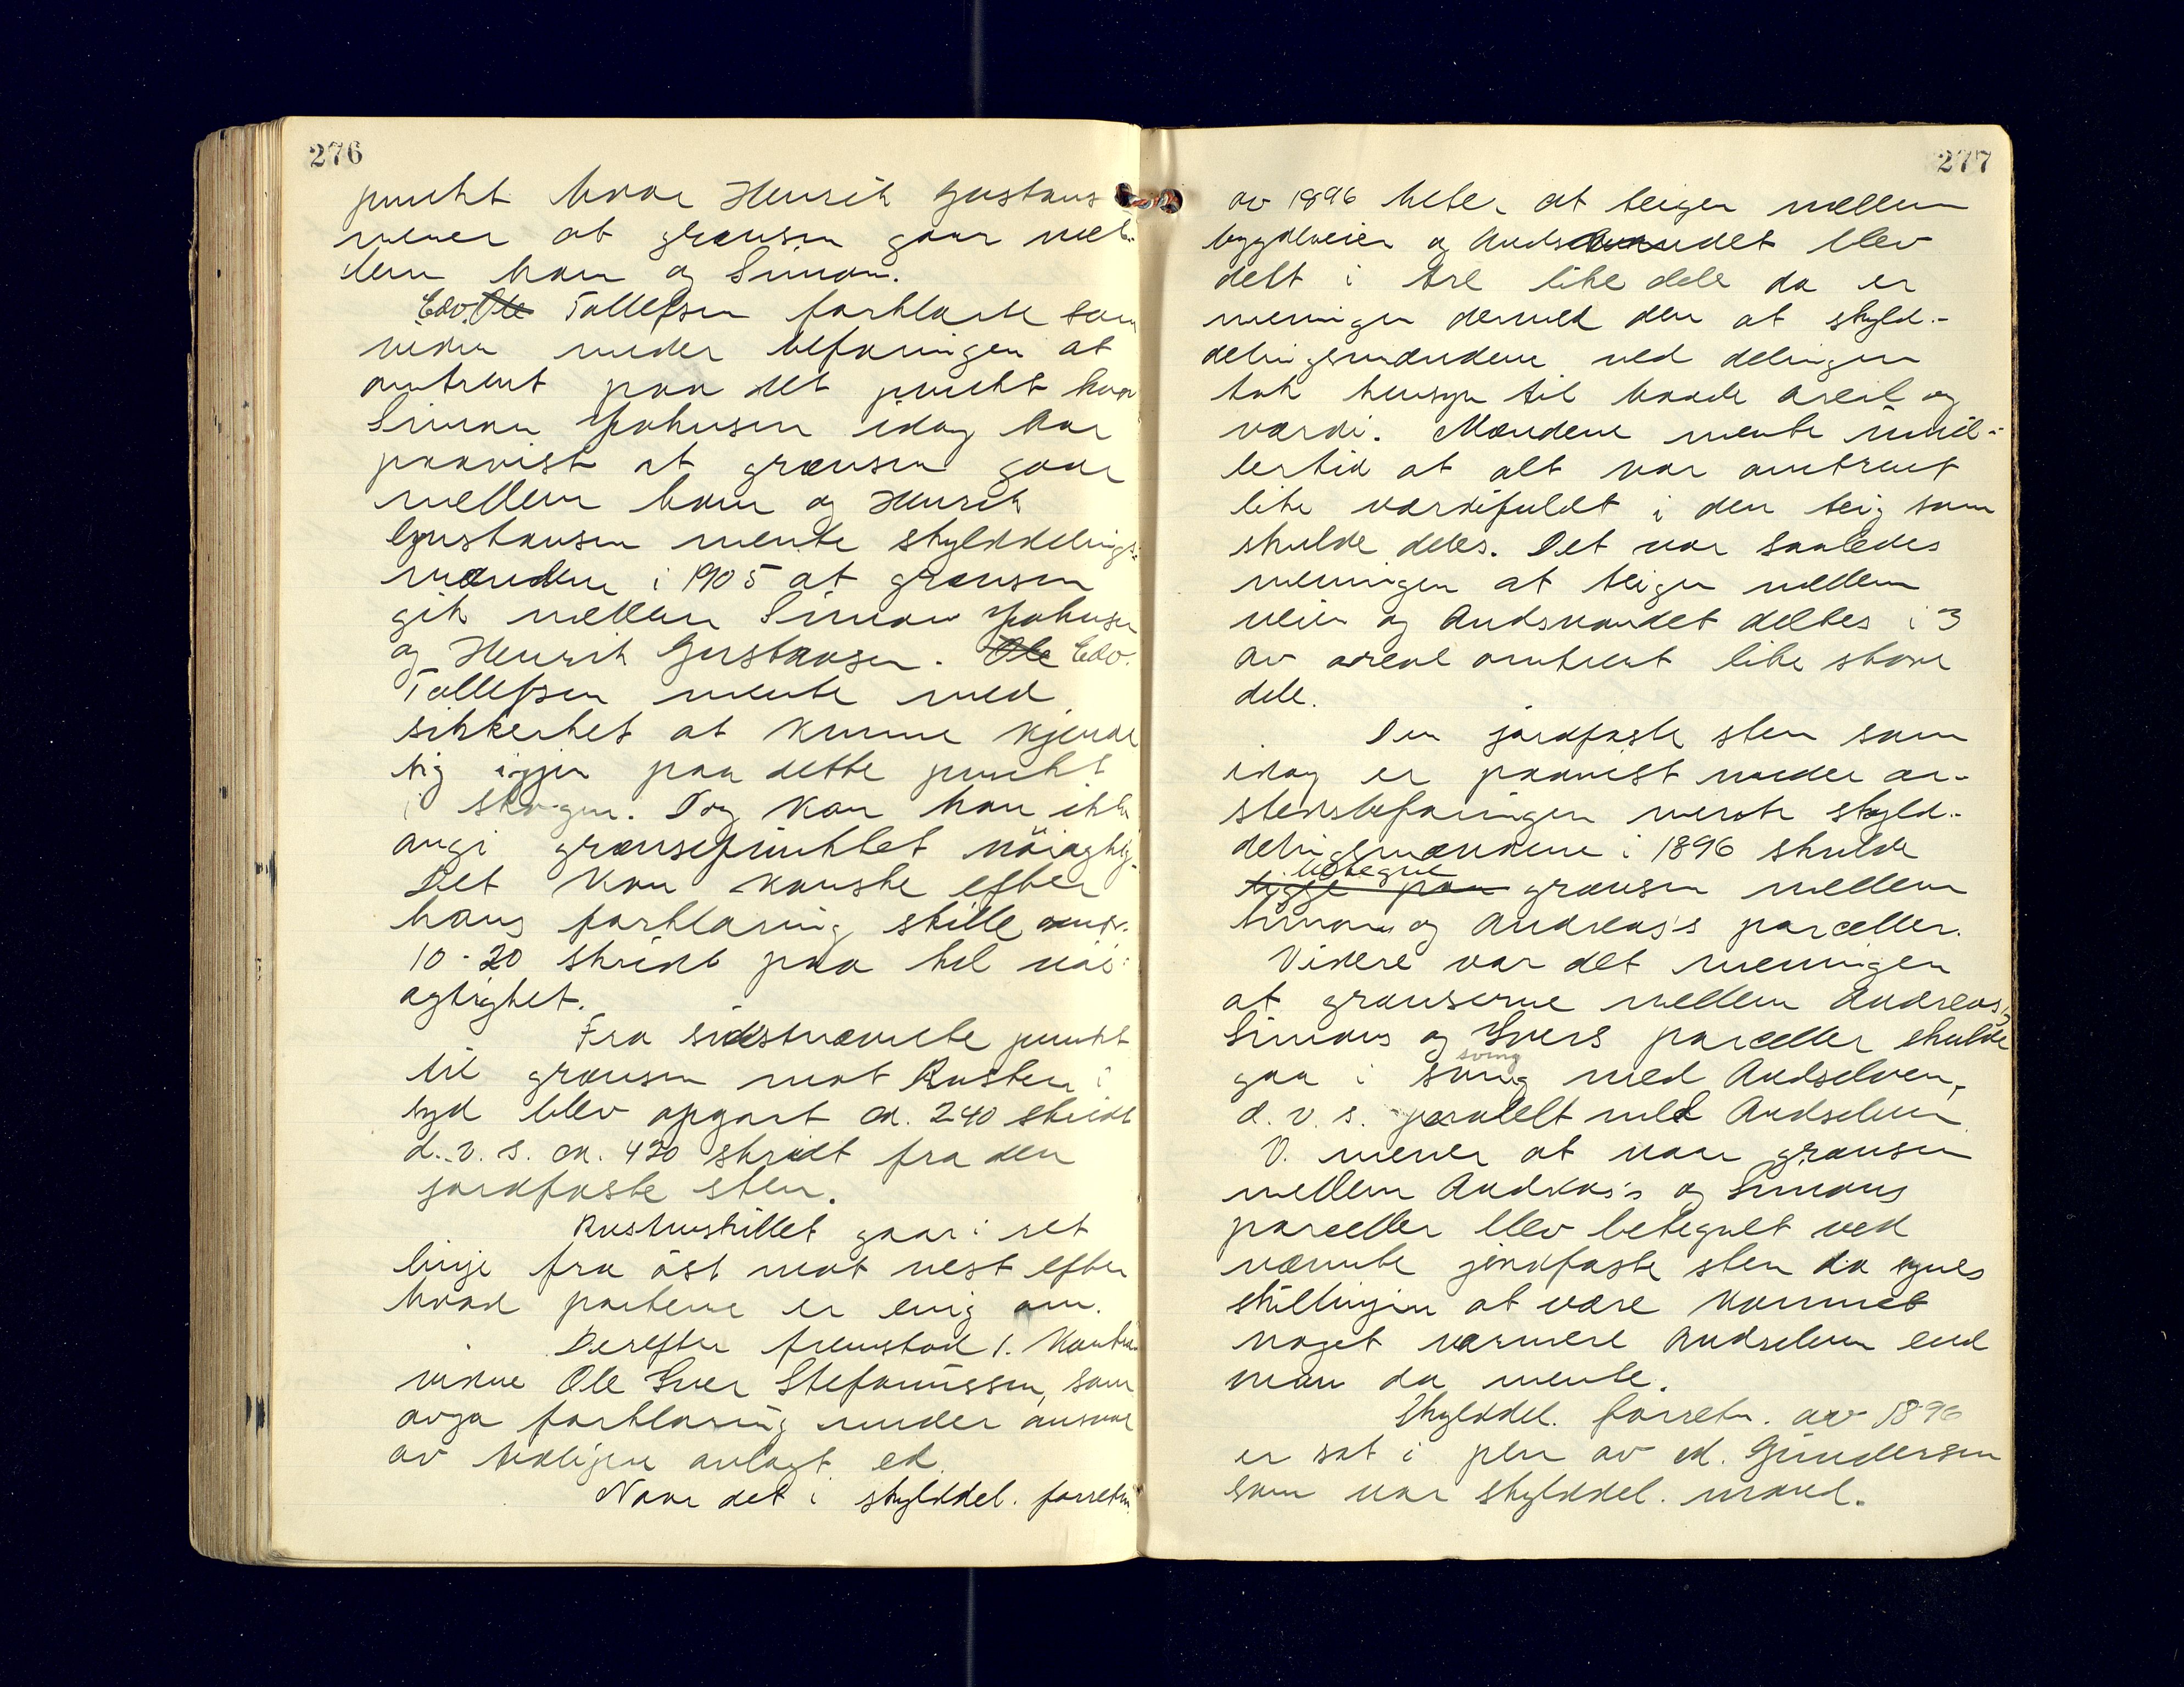 276
punkt hvor Henrik Gustavs
mener at grænsen gaar mel-
dem ham og Simon.
Edv. Ole Tollefsen forklarte som
vidne under befaringen at
omtrent paa det punkt hvor
Simon Johnsen idag har
paavist at grænsen gaar
mellem ham og Henrik
Gustavsen mente skylddelings-
mændene i 1905 at grænsen
gik mellem Simon Johnsen
og Henrik Gustavsen. Ole Edv.
Tollefsen mente med
sikkerhet at kunne kjende
sig igjen paa dette punkt
i skogen. Dog kan han ikke
angi grænsepunktet nöiagtig.
Det kan kanske efter
hans forklaring skille omtr.
10-20 skridt paa hel nöi-
agtighet.
Fra sidstnævnte punkt
til grænsen mot Rusten i
syd blev opgaat ca. 240 skridt
d.v.s. ca. 420 skridt fra den
jordfaste sten.
Rustenskillet gaar i ret
linje fra öst mot vest efter
hvad parterne er enig om.
Derefter fremstod 1. Kontra
vidne Ole Iver Stefanussen, som
avga forklaring under ansvar
av tidligere avlagt ed.
Naar det i skylddel. forretn.
277
av 1896 heter at teigen mellem
bygdeveien og Andsvandet blev
delt i tre like dele da er
meningen dermed den at skyld-
delingsmændene ved delingen
tok hensyn til baade areal og
værdi. Mændene mente imid-
lertid at alt var omtrent
like værdifuldt i den teig som
skulde deles. Det var saaledes
meningen at teigen mellem
veien og Andsvandet deltes i 3
av areal omtrent like store
dele.
Den jordfaste sten som
idag er paavist under aa-
stedsbefaringen mente skyld-
delingsmændene i 1896 skulde
betegne
ligge paa grænsen mellem
Simons og Andreas's parceller.
Videre var det meningen
at grænserne mellem Andreas,
Simons og Ivers parceller skulde
sving
gaa i sving med Andselven,
d.v.s. paralelt med Andselven.
V. mener at naar grænsen
mellem Andreas's og Simons
parceller blev betegnet ved
nævnte jordfaste sten da synes
skillinjen at være kommet
noget nærmere Andselven end
man da mente.
Skylddel. forretn. av 1896
er sat i pen av ed. Gundersen
som var skylddel. mand.